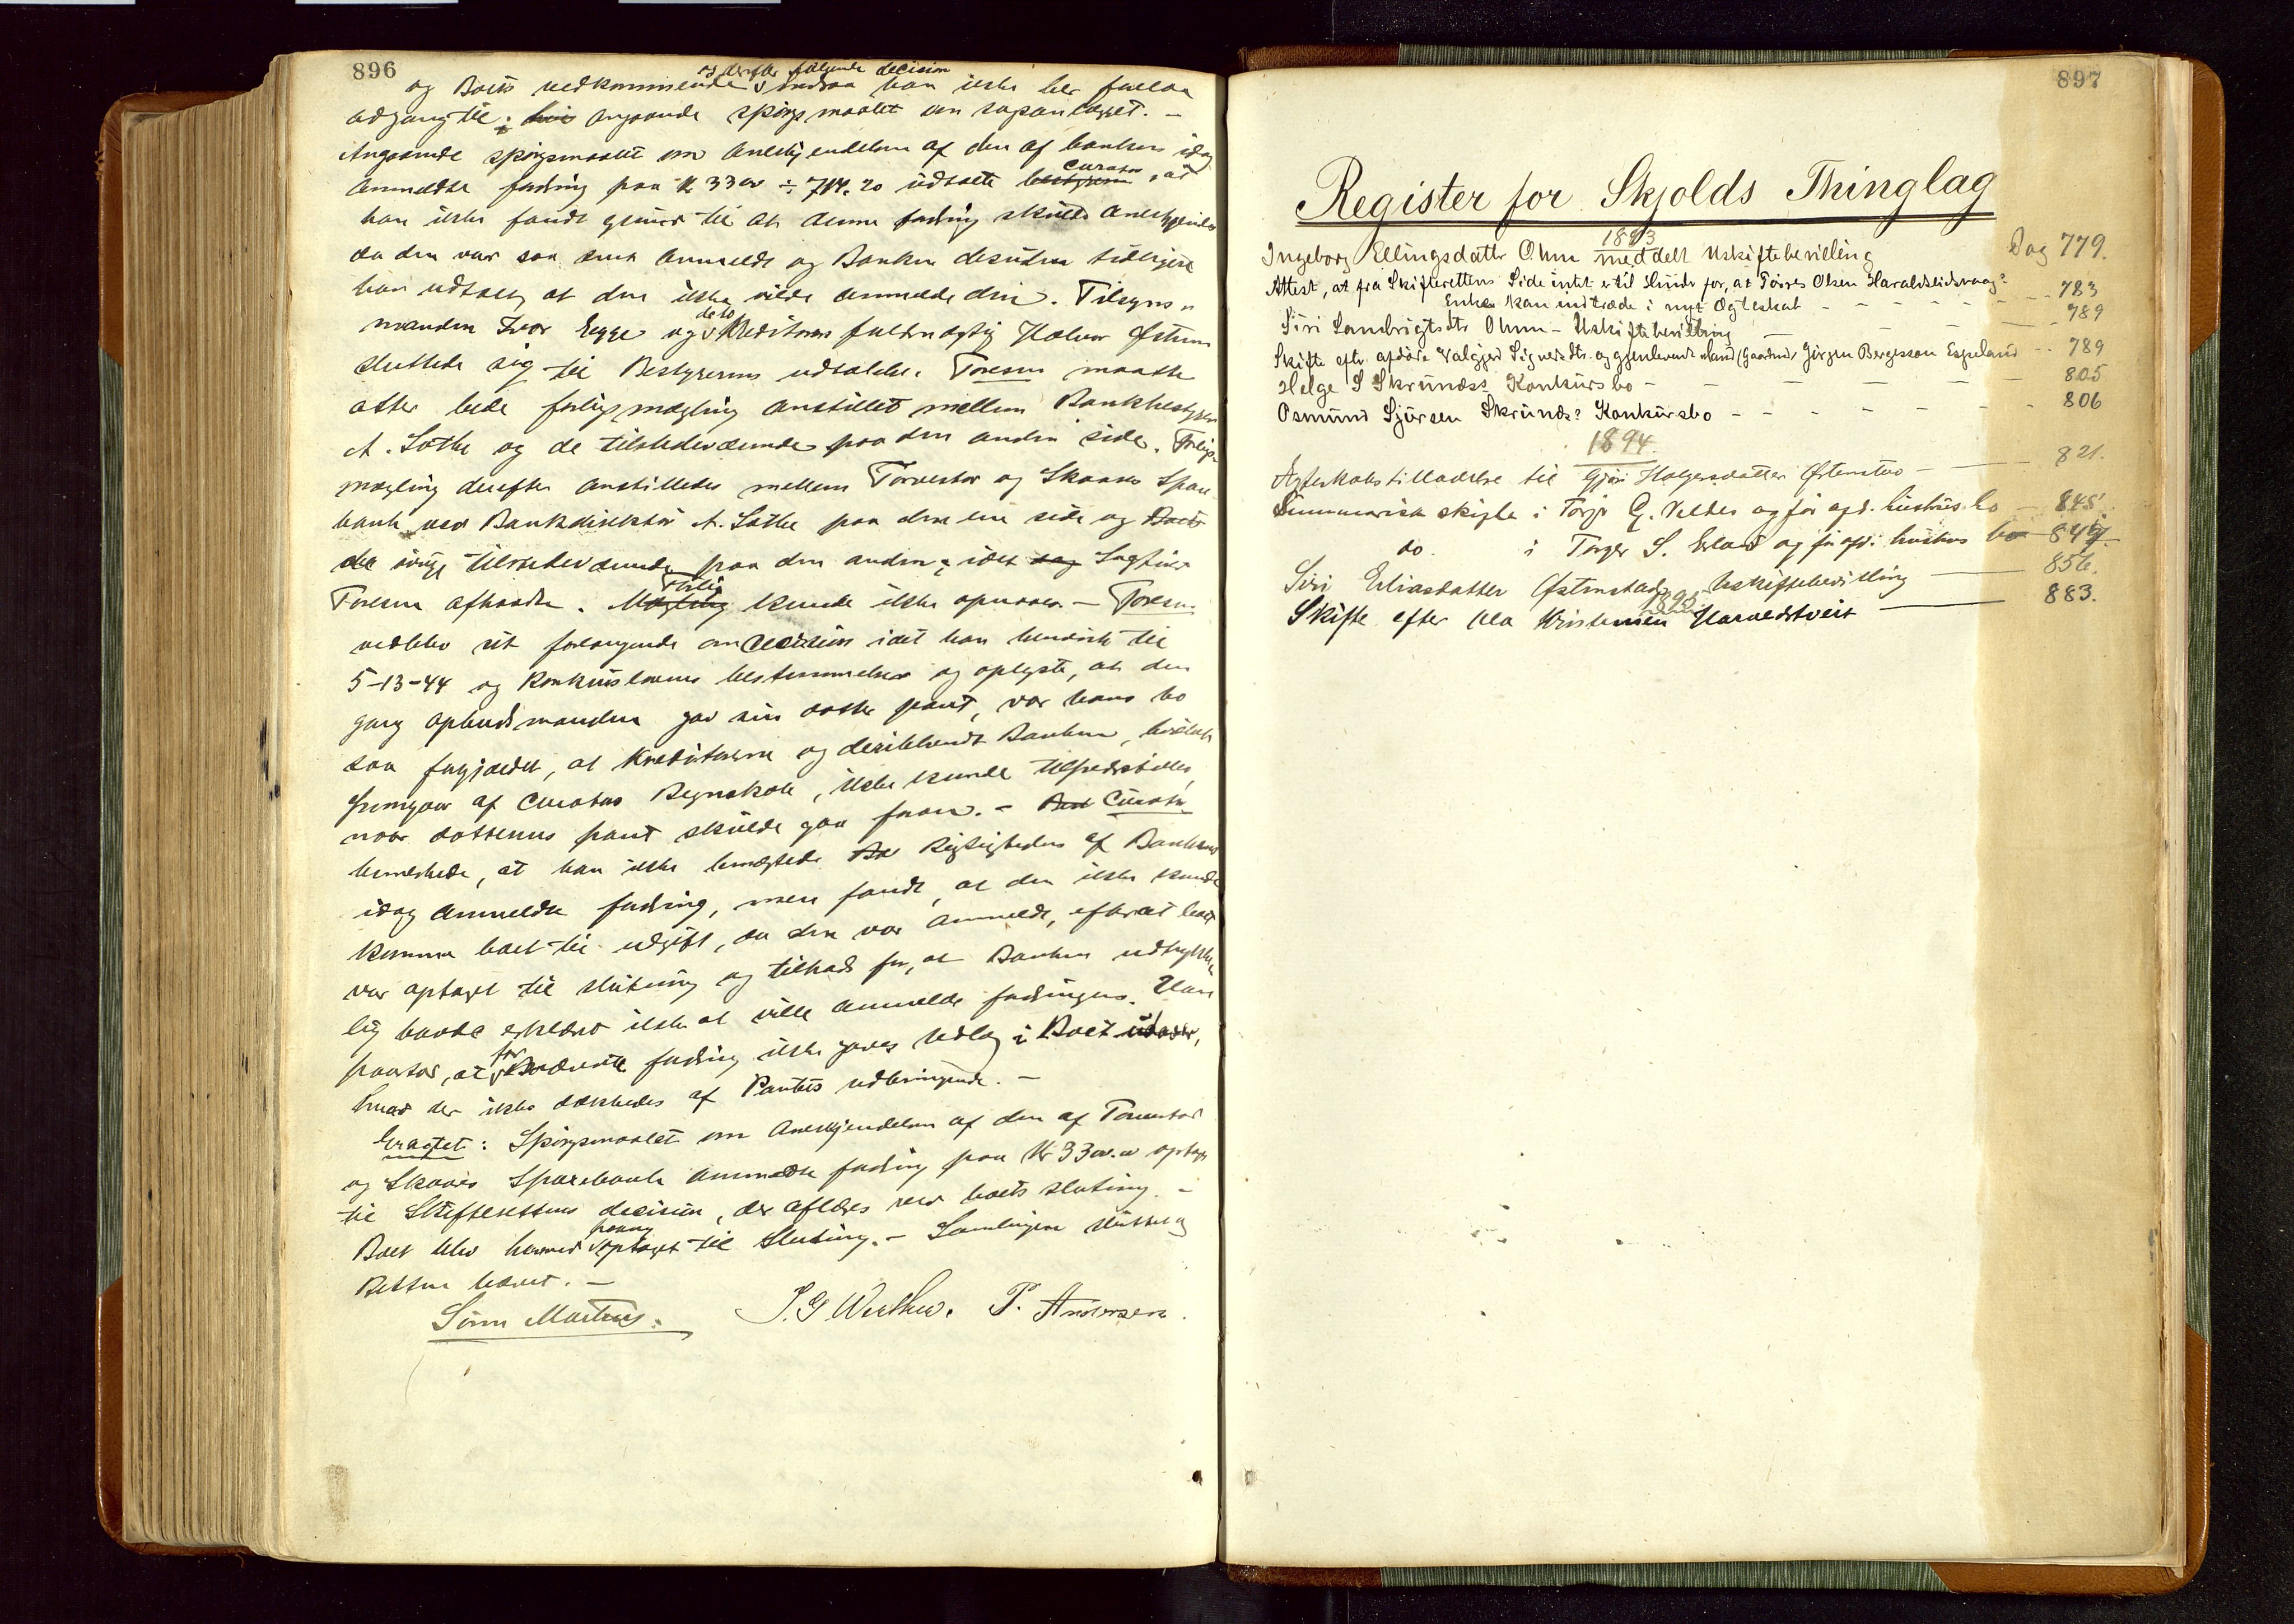 896
og derefter følgende decision
og Boets vedkommende hvad han ikke her
adgang til; angaaende spørgsmaalet om
Angaaende spørgsmaalet om Anerkjendelsen af den af banken idag
curator
anmeldte fordring paa K 3300 ÷ 714.20 udtalte bestyreren, at
han ikke fandt grund til at denne fordring skulde anerkjendes
da den var saa sent anmeldt og Banken desuden tidligere
har udtalt, at den ikke vilde anmelde den. Tilsyns-
manden Ivar Egge og Kreditorers fuldmægtig Halvor
sluttede sig til Bestyrerens udtalelse. Toresen maatte
atter bede forligsmægling anstillet mellem Bankbestyrer
A. Sothe og de tilstedeværende paa den anden side. Forligs-
mægling derefter anstilledes mellem Torvestad og Skaares Spare-
bank ved Bankdirektør A. Sothe paa den ene side og Boets
de øvrige tilstedeværende paa den anden, idet sag Sagfører
Forlig
Toresen afhandlede. Mægling kunde ikke opnaaes. — Toresen
vedblev sit forlangende om decision idet han henviste til
5-13-44 og Konkurslovens bestemmelser og oplyste, at den
gang opbudsmanden gav sin datter pant, var hans bo
saa forgjældet, at Kreditorerne og deriblandt Banken, hvilket
fremgaar af Curators Regnskab, ikke kunde tilfredsstilles,
naar datterens pant skulde gaa foran. — Curator
bemerkede, at han ikke benægtede Rigtigheden af Bankens
idag anmeldte fordring, men fandt, at den ikke kunde
komme boet til udgift, da den var anmeldt, efterat boet
var optaget til slutning og tiltrods for, at Banken udtrykke-
lig havde erklæret ikke at ville anmelde fordringen. Han
for
paastod, at fordring ikke gaves udlæg i Boet
hvad der ikke dækkedes af Pantets udbringende. —
Eragtet: Spørgsmaalet om Anerkjendelsen af den af Torvestad
og Skaares Sparebank anmeldte fordring paa Kr 3300.00 optages
til Skifterettens decision, der aflæses ved boets slutning. —
paany
Boet blev hermed optaget til Slutning. — Samlingen sluttet og
Retten hævet. —
P. Andersen.
897
Register for Skjolds Thinglag
1893
Ingeborg Ellingsdatter Ohm meddelt Uskiftebevilling Pag 779.
Attest, at fra Skifterettens Side intet er til Hinder for, at Tørres Olsen Haraldseidsvaag's
Enke kan indtræde i nyt Ægteskab — 783
Siri Lambrigtsdtr Ohm – Uskiftebevilling — 789
Skifte eftr. afdøde Valgjerd Sigvedsdtr. og gjenlevende Mand, Gaardmd. Jørgen Bergesson Espeland – 789
Helge S Skrunæss Konkursbo — 805
Osmund Sjursen Skrunæs' Konkursbo — 806
1894.
Ægteskabstilladelse til Gjøri Holgersdatter Østenstad — 821.
Summarisk skifte i Torjer G. Veldes og før afd. hustrus bo — 845.
do. i Torger S. og før afd. hustrus bo 849.
Siri Eliasdatter Østenstad, Uskiftebevilling — 856.
1895
Skifte efter Ola Kristensen Haraldstveit — 883.